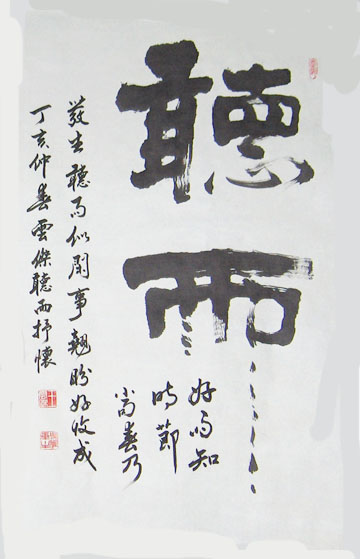 聽雨
好雨知
時節
當春乃
發生聽雨似閑事翹盼好收成
丁亥仲春雲傑聽雨抒懷